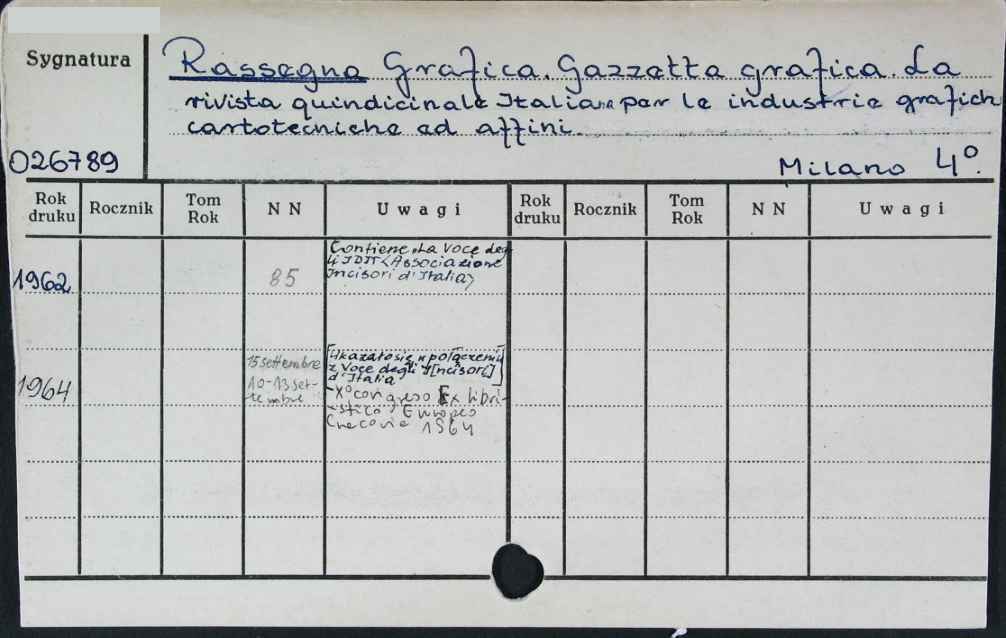 Sygnatura
Rassegna Grafica. Gazzetta grafica. La
rivista quindicinale Italiana per le industrie grafich
cartotecniche ed affini.
026789
Milano 4°.
Rok druku Rocznik Tom Rok NN Uwagi Rok druku Rocznik Tom Rok NN Uwagi
1962 85
Contiene „La Voce deg
Incisori d'Italia〉
〈Associazione
1964
15 settembre
10-13 set-
tembre
[Ukazało się w połączeniu
z Voce degli I[ncisori]
d'Italia]
-X° congreso Ex libri-
-stico Europeo
Cracovie 1964